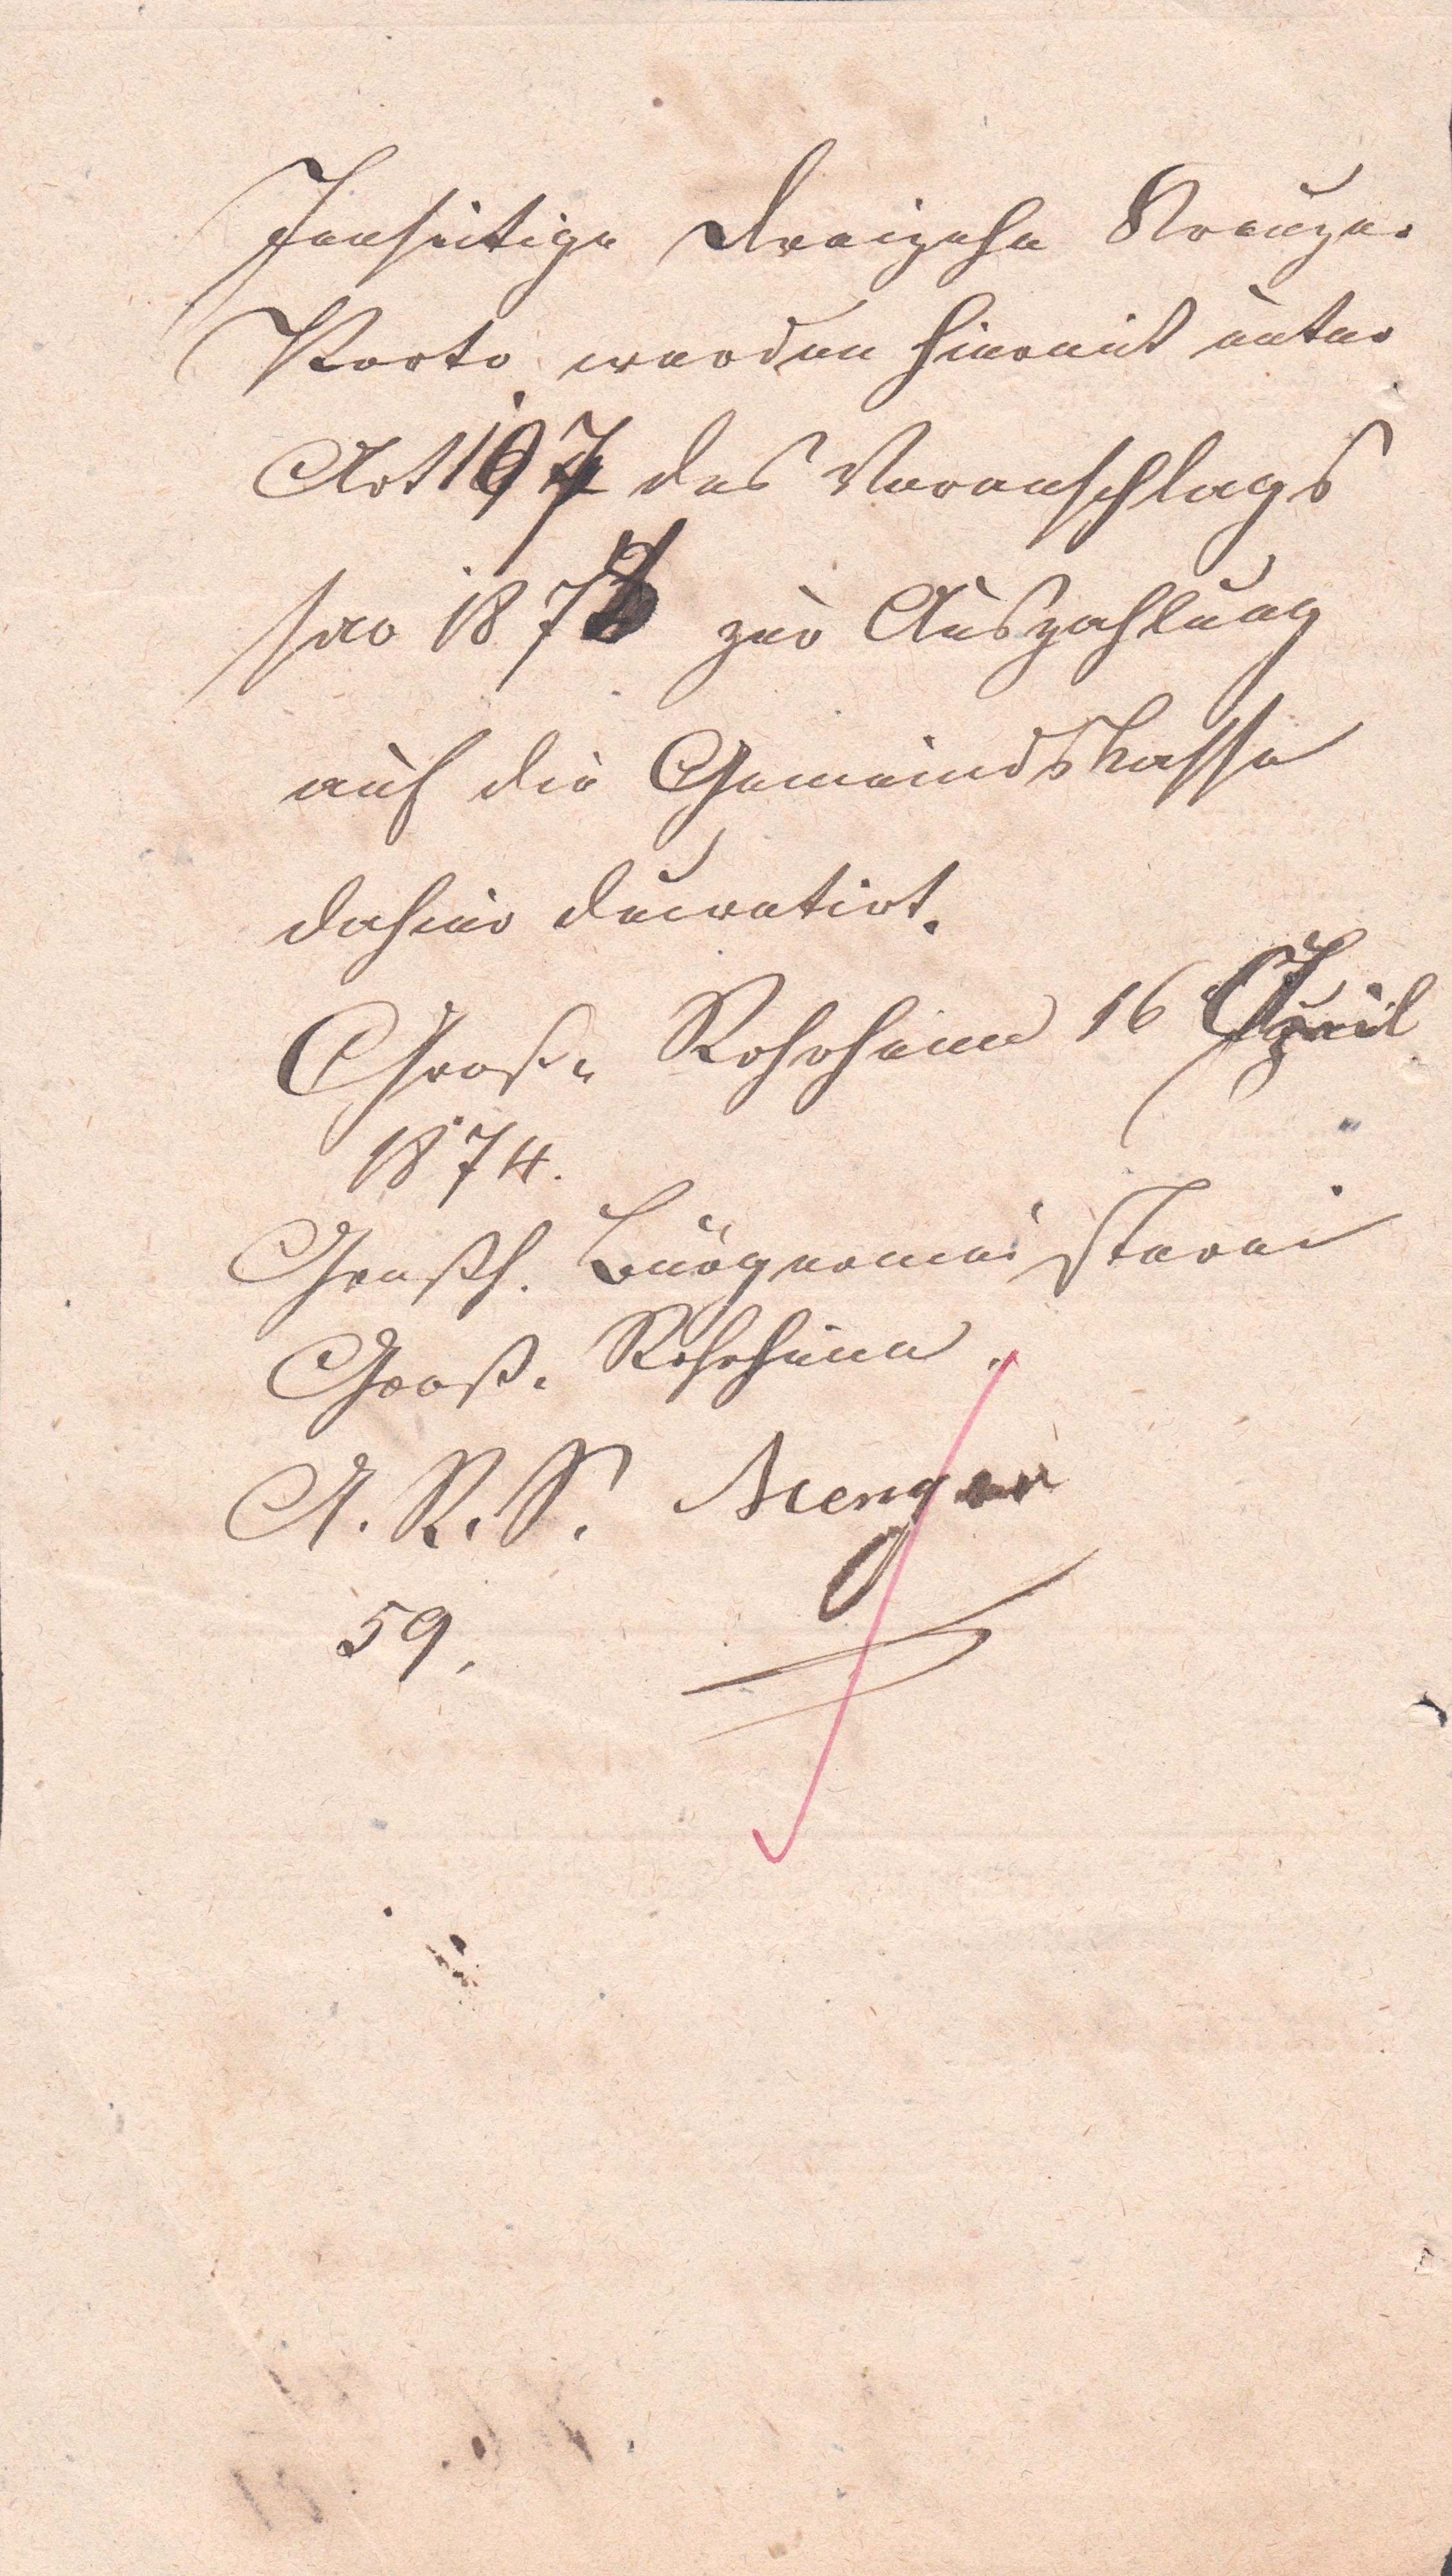 Jenseitige dreizehn Kreuzer
Porto werden hiermit unter
Art 197 des Voranschlags
pro 187 zur Auszahlung
auf die Gemeindskasse
dahier decretirt.
Groß-Rohrheim 16
1874.
Großh. Bürgermeisterei
Groß-Rohrheim.
A. R. S. Menger
59.